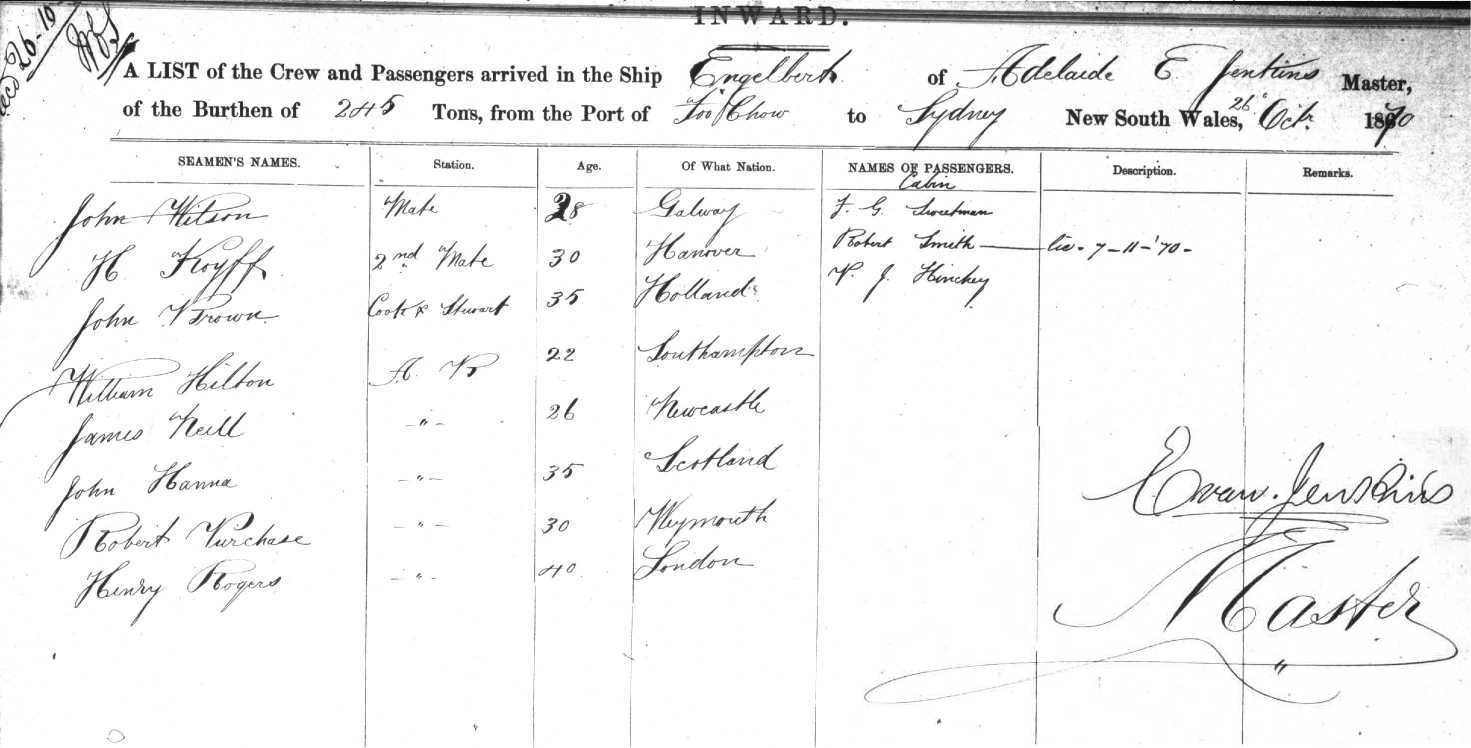 INWARD.
recd 26-10
A LIST of the Crew and Passengers arrived in the Ship Engelbert of Adelaide E Jenkins Master,
of the Burthen of 245 Tons, from the Port of Foo Chow to Sydney New South Wales, 26 Octr 1870
SEAMEN'S NAMES. Station. Age. Of What Nation. NAMES OF PASSENGERS. Description. Remarks.
Cabin
John Wilson Mate 28 Galway F. G. Sweetman
H Koyff 2nd Mate 30 Hanover Robert Smith 7-11-'70-
John Brown Cook & Stewart 35 Holland J. Hinchey
William Hilton A B 22 Southampton
James Neill -"- 26 Newcastle
John Hanna -"- 35 Scotland
Robert Purchase -"- 30 Weymouth
Henry Rogers -"- 40 London
Evan Jenkins
Master
"